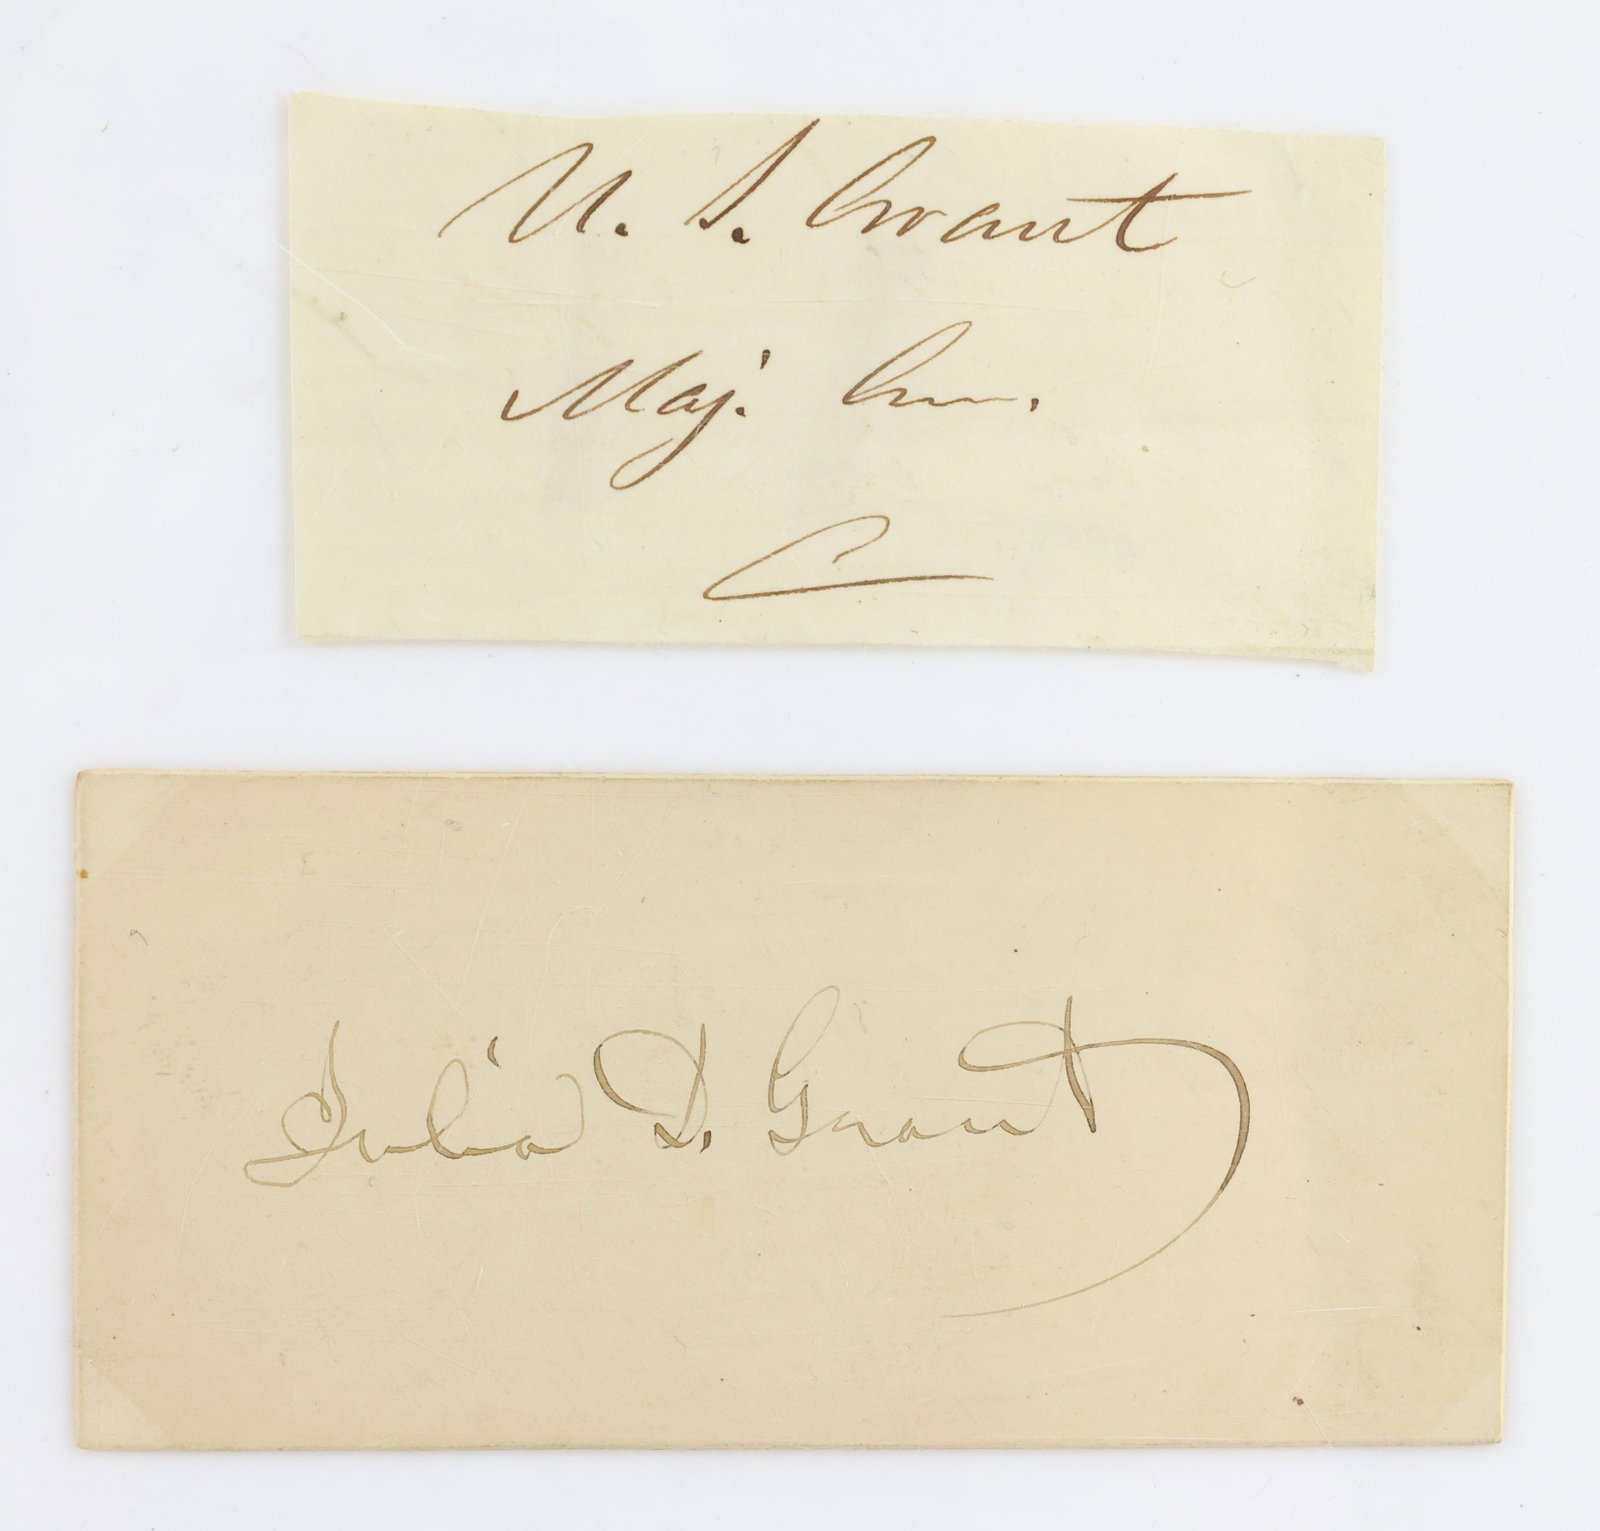 U. S. Grant
Maj. Gen.
Julia D. Grant